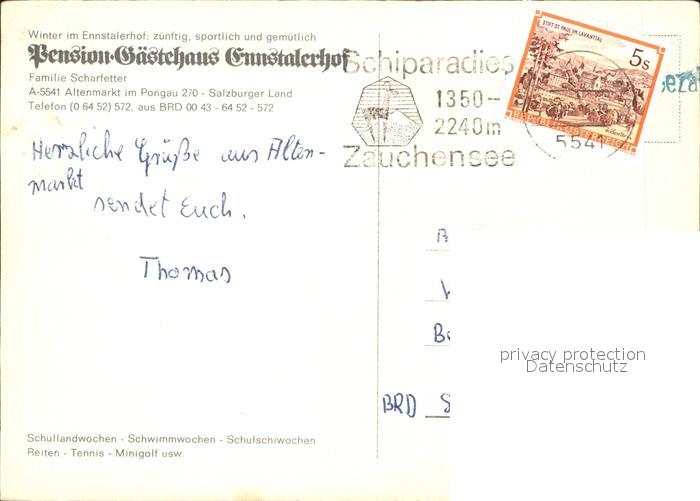 Winter im Ennstalerhof: zünftig, sportlich und gemütlich
Pension-Gästehaus Ennstalerhof
Familie Scharfetter
A-5541 Altenmarkt im Pongau 270 - Salzburger Land
Telefon (0 64 52) 572, aus BRD 00 43 - 64 52 - 572
Schiparadies
1350-
2240m
Zauchensee
STIFT ST. PAUL IM LAVANTTAL
5s
REPUBLIK ÖSTERREICH
5541
Herzliche Grüße aus Alten-
markt
sendet Euch.
Thomas
BRD
privacy protection
Datenschutz
Schullandwochen - Schwimmwochen - Schulschiwochen
Reiten - Tennis - Minigolf usw.